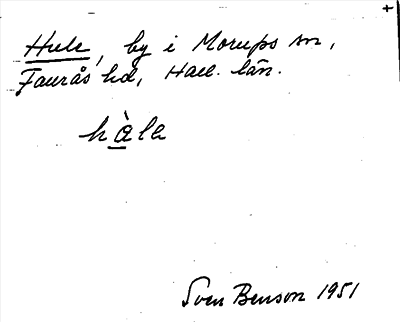 Hule, by i Morups sn,
Faurås hd, Hall. län.
hàla
Sven Benson 1951